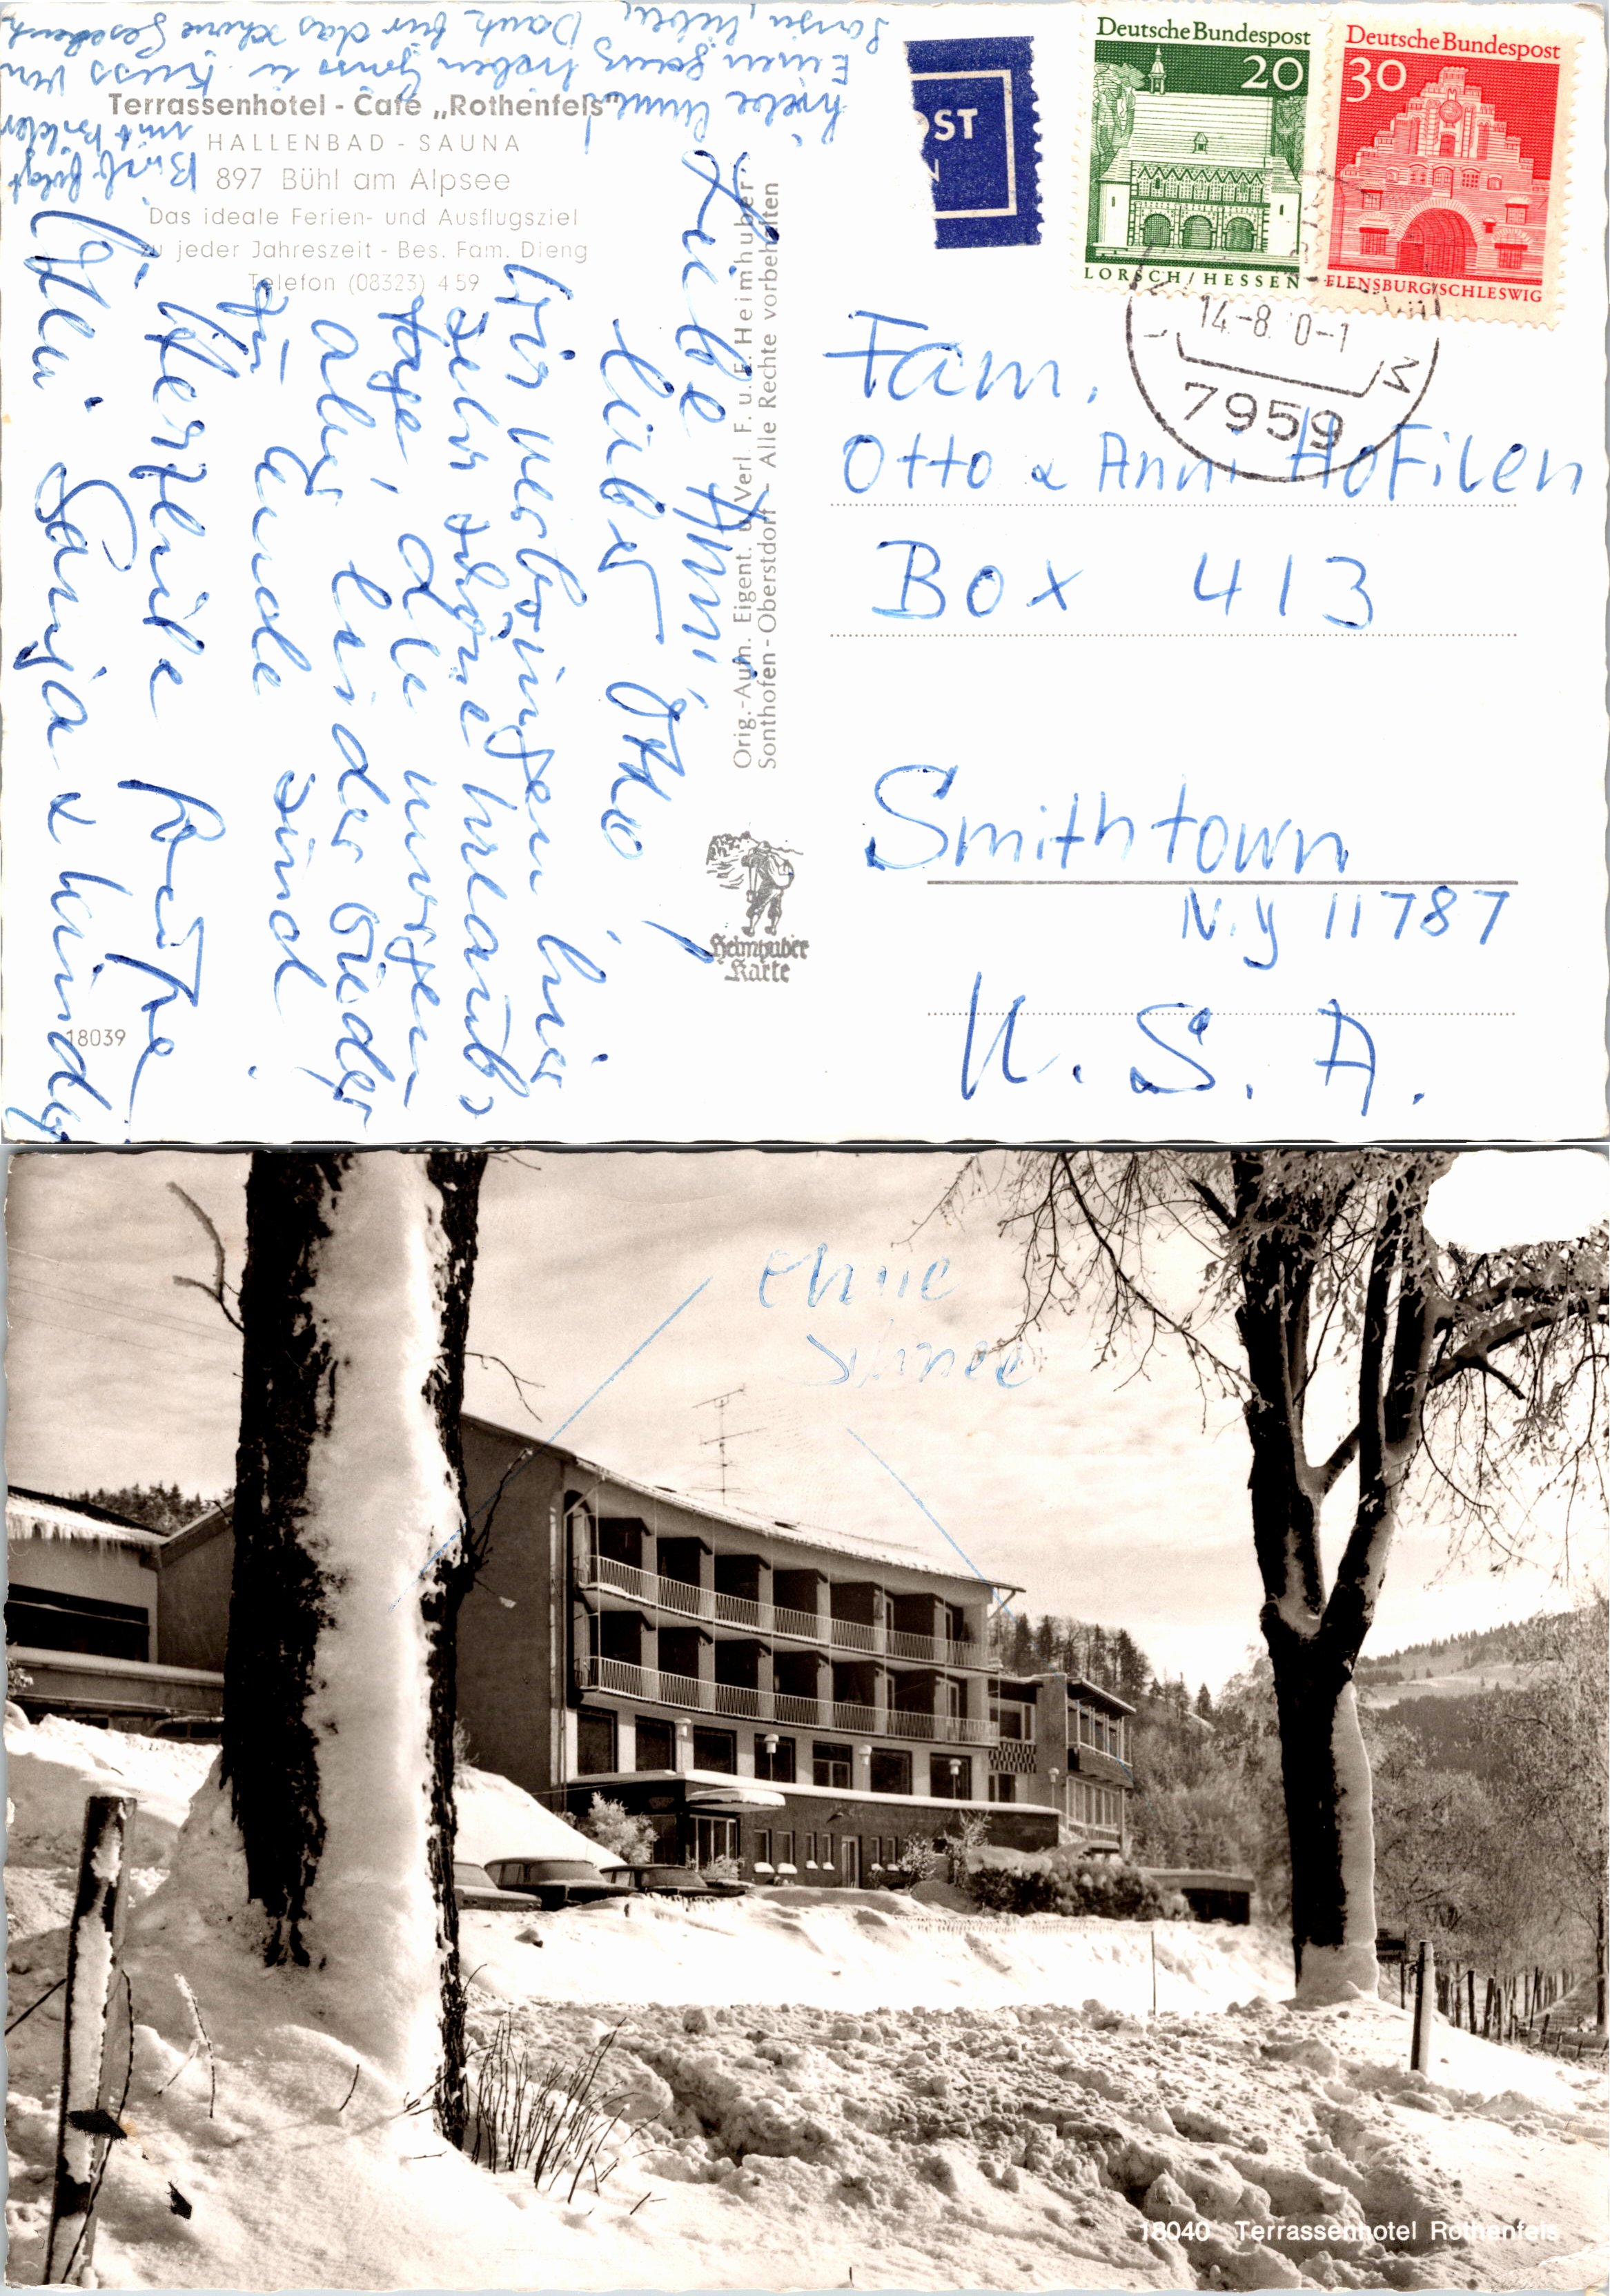 Terrassenhotel - Café „Rothenfels"
HALLENBAD - SAUNA
897 Bühl am Alpsee
Das ideale Ferien- und Ausflugsziel
zu jeder Jahreszeit - Bes. Fam. Dieng
Telefon (08323) 459
Liebe Anni,
lieber Otto!
Wir verbringen hier
sehr schöne Urlaubs
tage,
aber leider wieder
zu Ende sind.
Herzliche Grüße
Sonja & Kinder
Liebe Anne!
Einen ganz lieben Gruss u. Kuss von
Sonja, lieben Dank für das schöne Geschenk
Brief folgt
mit Bilder
Orig.-Aufn. Eigent. u. Verl. F. u. E. Heimhuber
Sonthofen - Oberstdorf - Alle Rechte vorbehalten
Heimhuber
Karte
18039
OST
N
Deutsche Bundespost
20
LORSCH/HESSEN
Deutsche Bundespost
30
FLENSBURG/SCHLESWIG
14.-8. 0-1
7959
Fam.
Otto & Anni Hofilen
Box 413
Smithtown
N.Y 11787
U. S. A.
ohne
Schnee
18040 Terrassenhotel Rothenfels